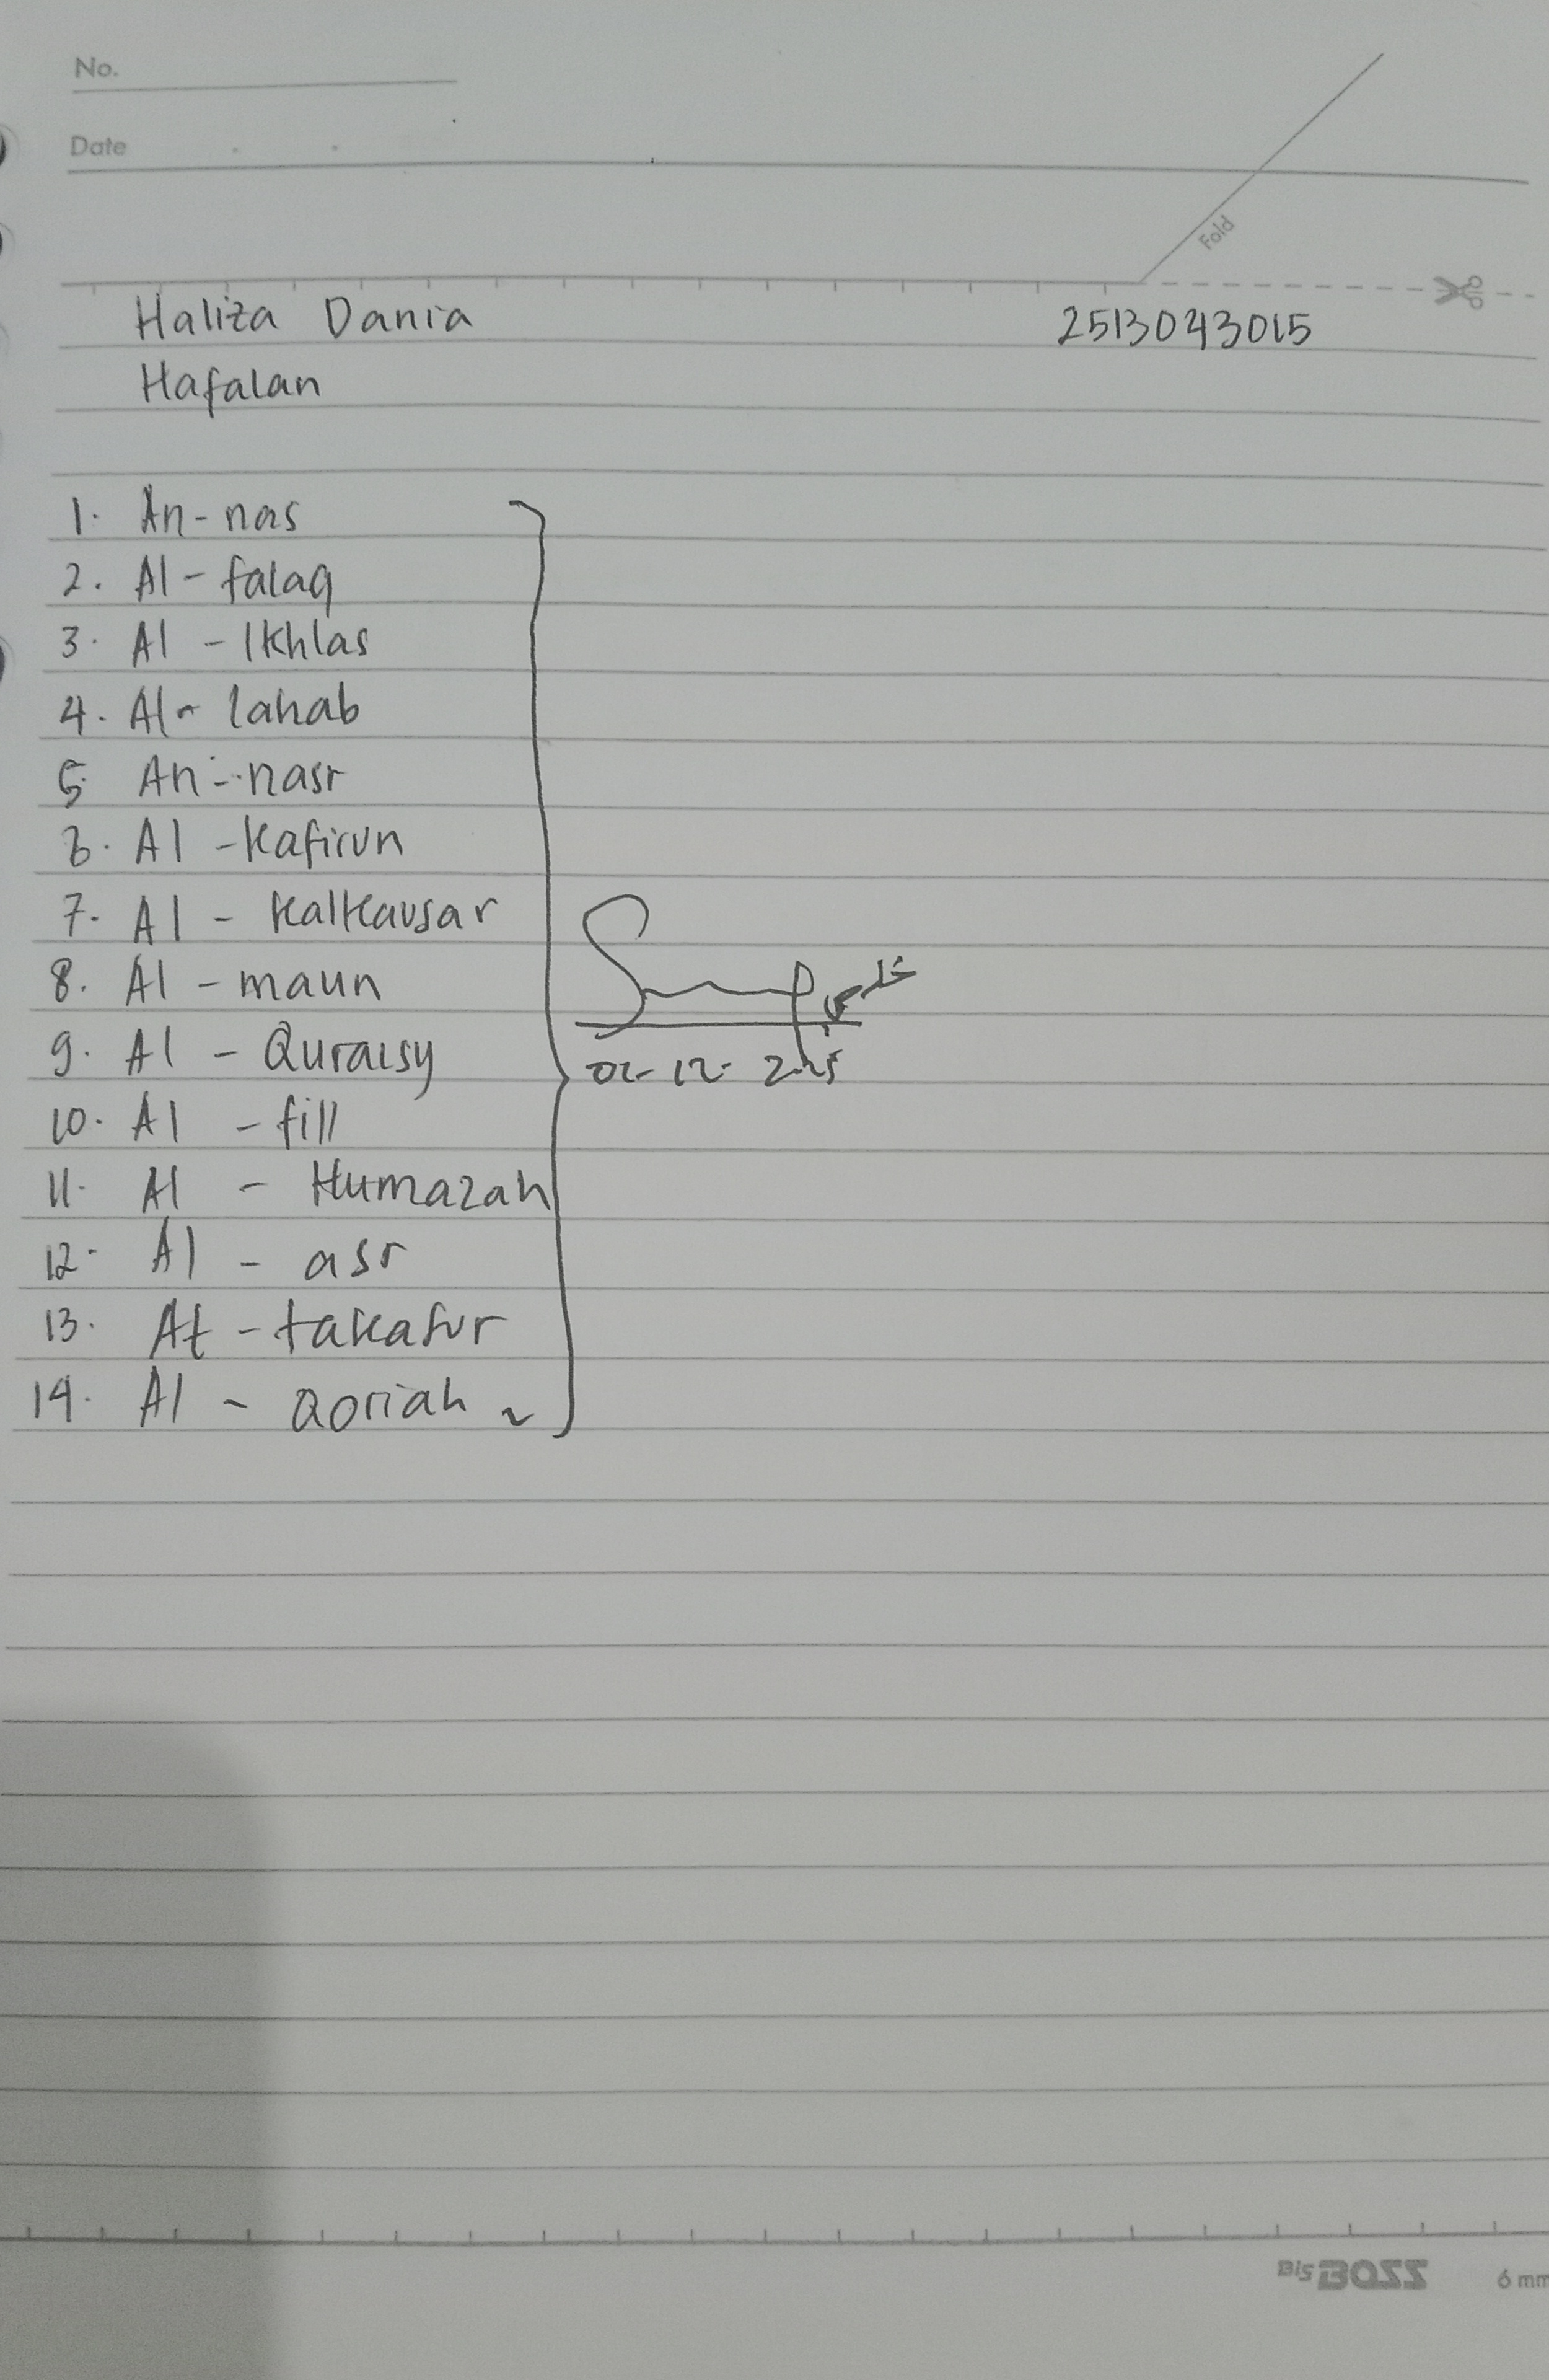 No.
Date
Fold
Haliza Dania 2513043015
Hafalan
1. An-nas
2. Al-falaq
3. Al-Ikhlas
4. Al-lahab
5. An-nasr
6. Al-Kafirun
7. Al-Kalkausar
8. Al-maun
9. Al-Quraisy
10. Al-fill
11. Al-Humazah
12. Al-asr
13. At-takasur
14. Al-Qoriah
خلص
02-12-2025
BIG BOSS 6 mm